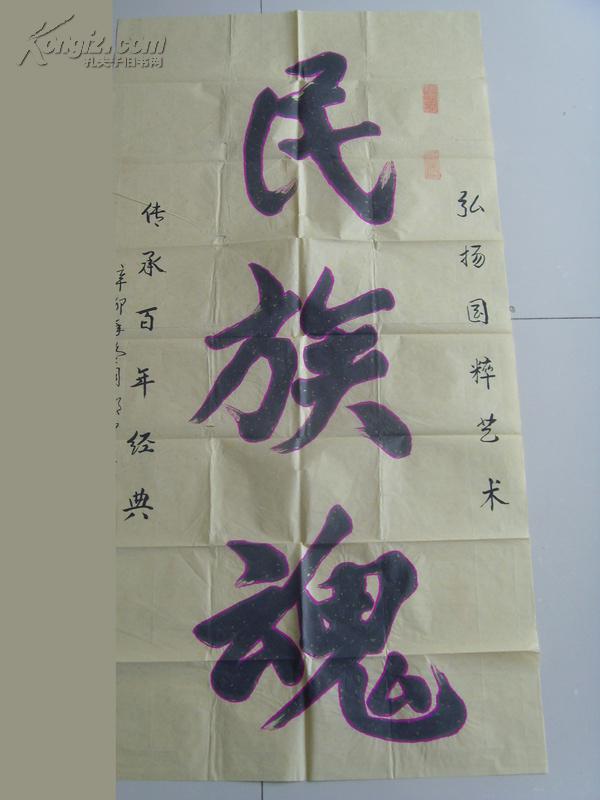 弘扬国粹艺术
民族魂
传承百年经典
辛卯年冬月
Kongfz.com
孔夫子旧书网